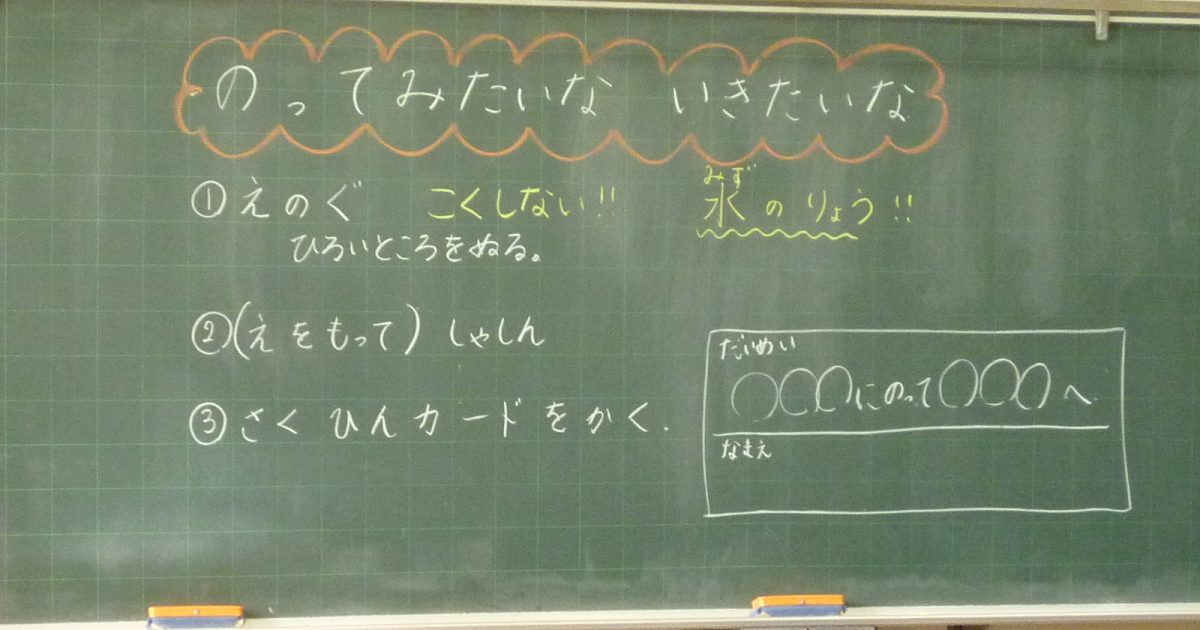 のってみたいな いきたいな
①えのぐ こくしない!! 水のりょう!!
みず
ひろいところをぬる。
②(えをもって)しゃしん
③さくひんカードをかく.
だいめい
○○○にのって○○○へ.
なまえ